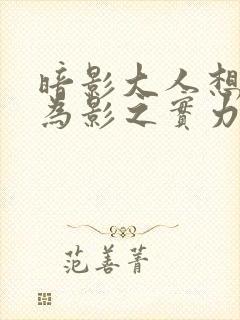 暗影大人想
為影之實力
范善菁